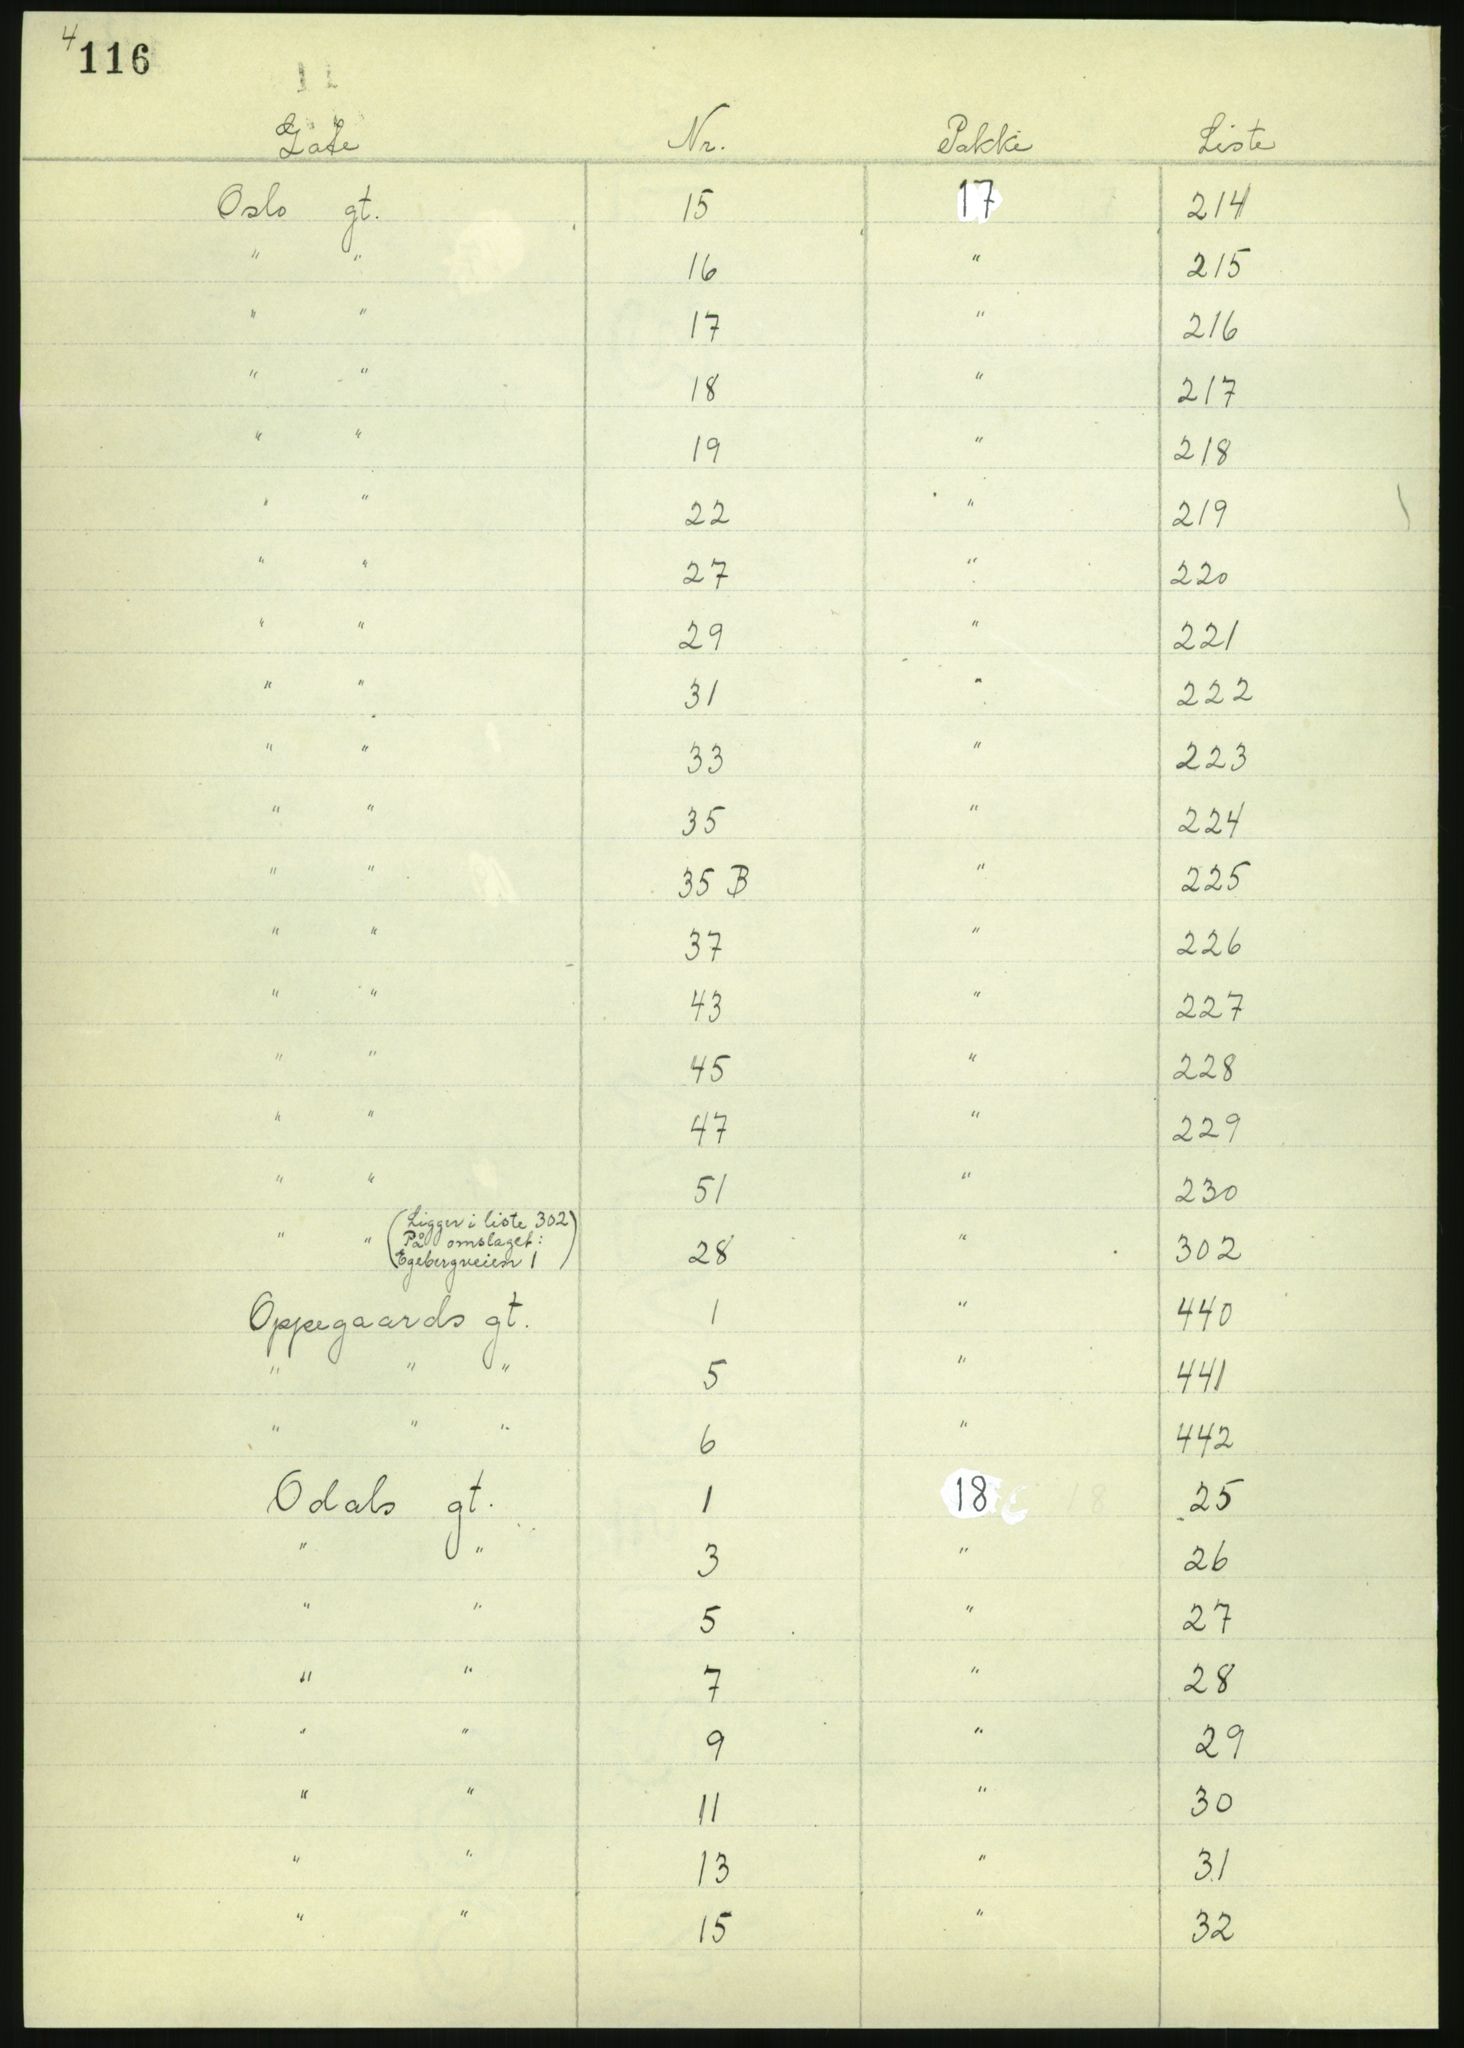 4
116
Gate Nr. Pakke Liste
Oslo gt. 15 17 214
" " 16 " 215
" " 17 " 216
" " 18 " 217
" " 19 " 218
" " 22 " 219
" " 27 " 220
" " 29 " 221
" " 31 " 222
" " 33 " 223
" " 35 " 224
" " 35 B " 225
" " 37 " 226
" " 43 " 227
" " 45 " 228
" " 47 " 229
" " 51 " 230
(Ligger i liste 302)
" " På omslaget: 28 " 302
Egebergveien 1
Oppegaards gt. 1 " 440
" " " 5 " 441
" " " 6 " 442
Odals gt. 1 18 25
" " 3 " 26
" " 5 " 27
" " 7 " 28
" " 9 " 29
" " 11 " 30
" " 13 " 31
" " 15 " 32